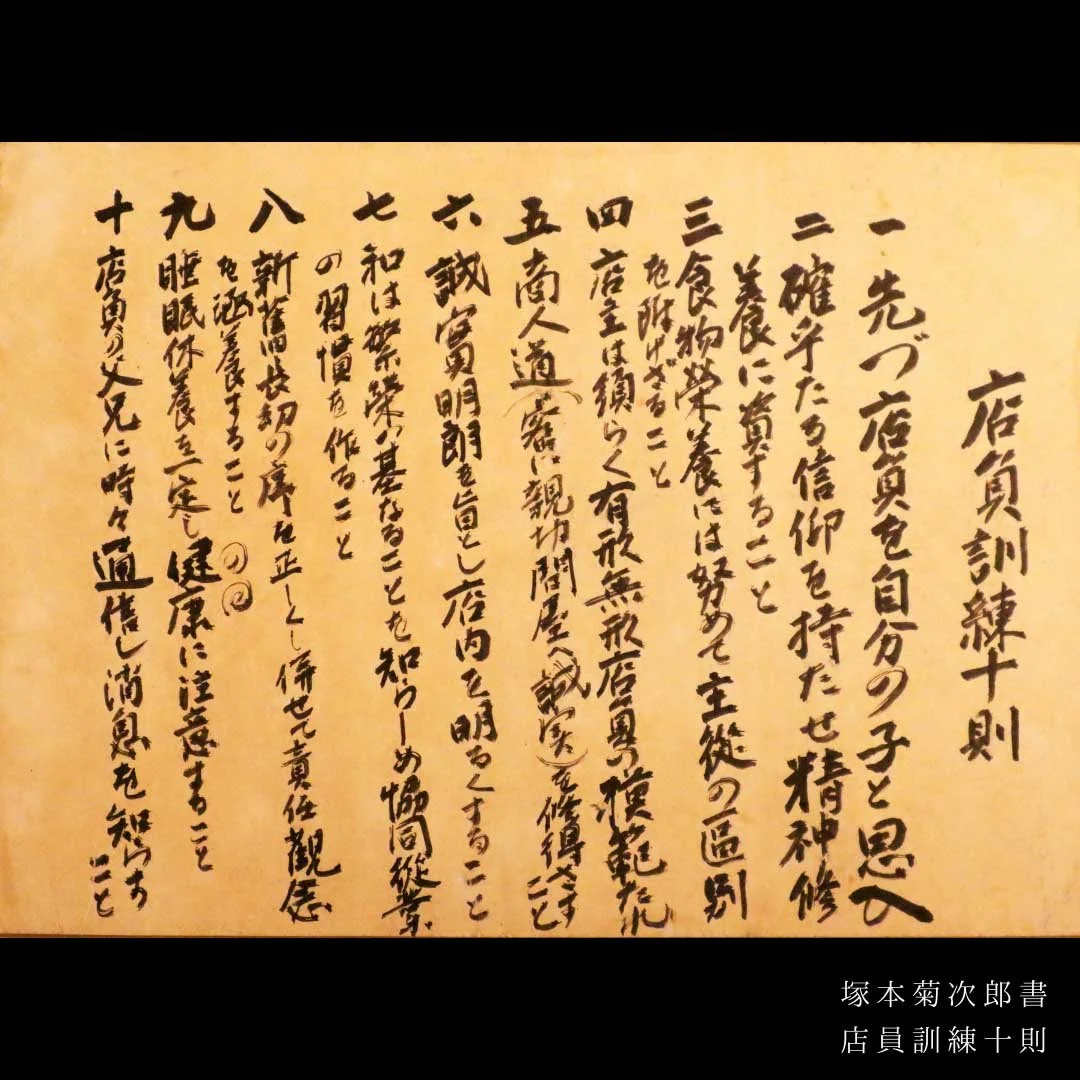 店員訓練十則
一 先づ店員を自分の子と思へ
二 確乎たる信仰を持たせ精神修
養に資すること
三 食物栄養には努めて主従の区別
を附けざること
四 店主は須らく有形無形店員の模範たれ
五 商人道(客に親切問屋へ誠実)を修得さす
こと
六 誠實明朗を旨とし店内を明るくすること
七 和は繁榮の基なることを知らしめ協同従業
の習慣を作ること
八 新舊長幼の序を正しくし併せて責任観念
を涵養すること
九 睡眠休養を一定し健康に注意すること
十 店員の父兄に時々通信し消息を知らす
こと
塚本菊次郎書
店員訓練十則